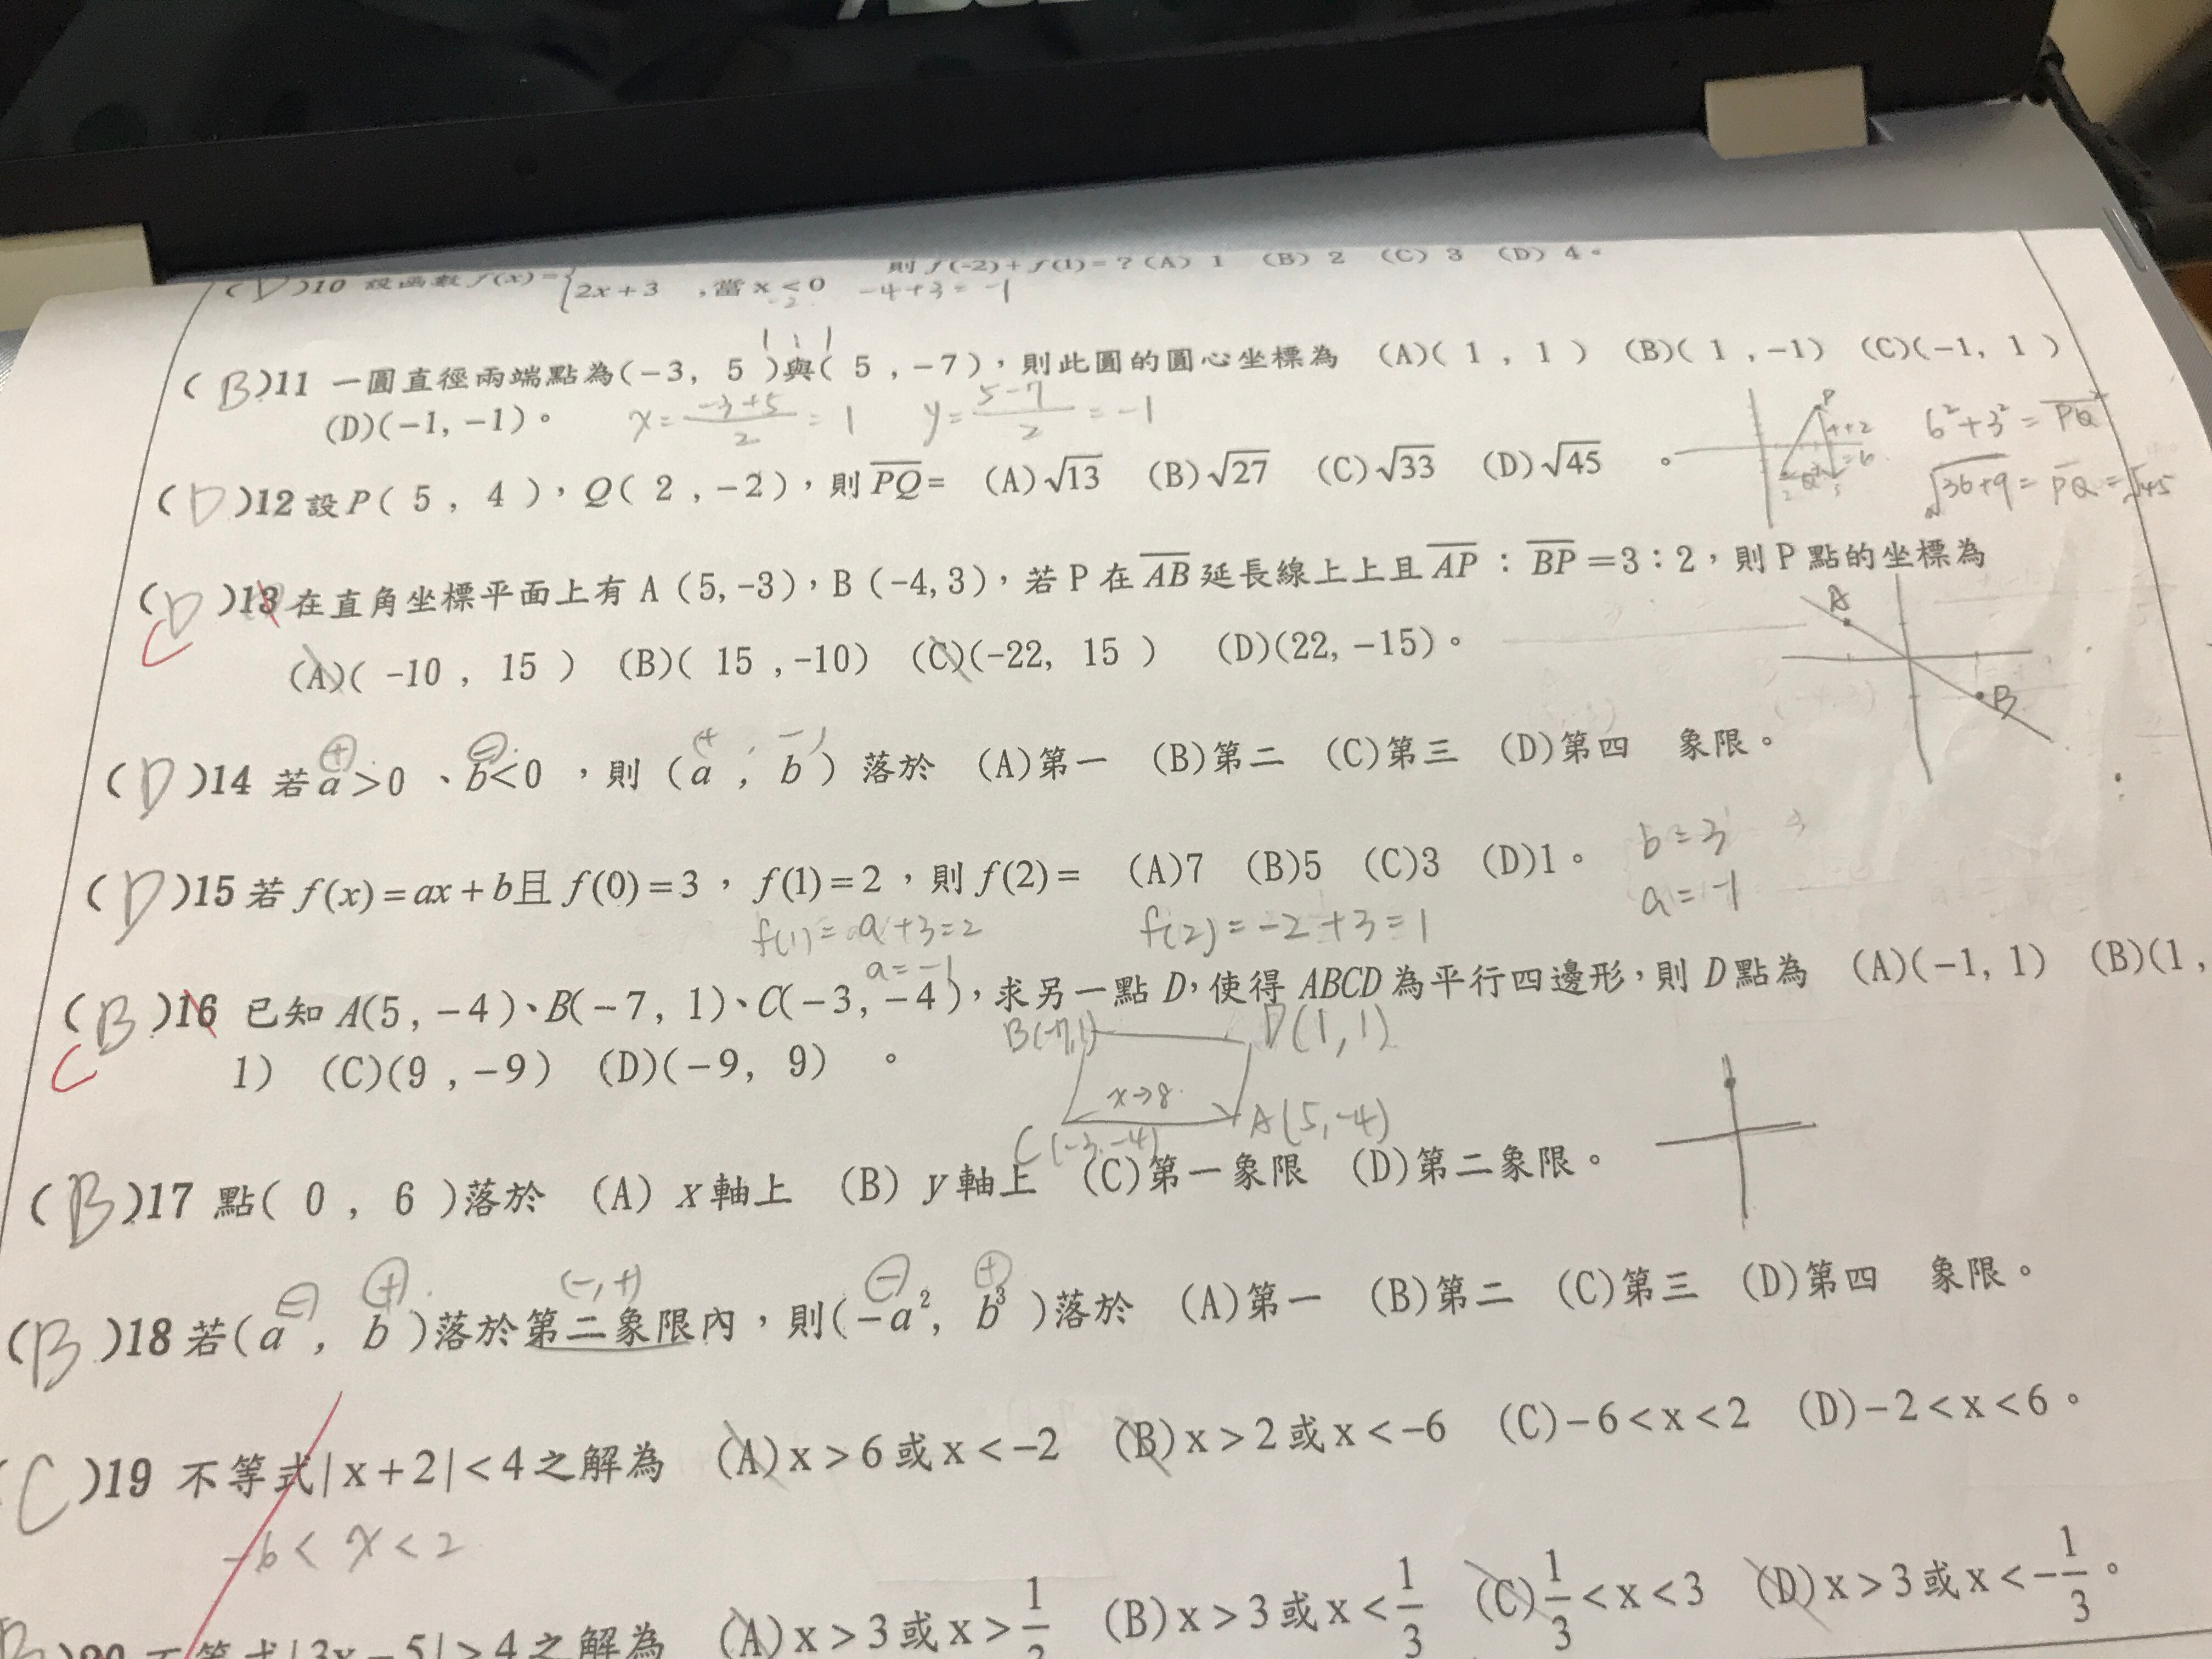 則 f(-2)+f(1)=？(A) 1 (B) 2 (C) 3 (D) 4。
(D)10 設函數 f(x)={2x+3 ，當 x<0 -4+3=-1
-2
1：1
(B)11 一圓直徑兩端點為(-3, 5 )與( 5 , -7)，則此圓的圓心坐標為 (A)( 1 , 1 ) (B)( 1 , -1) (C)(-1, 1 )
(D)(-1, -1)。 x=(-3+5)/2=1 y=(5-7)/2=-1
(D)12 設 P( 5 , 4 )，Q( 2 , -2)，則 PQ= (A)√13 (B)√27 (C)√33 (D)√45 。
P 4+2 =6 Q
6²+3²=PQ²
√36+9=PQ=√45
(D)13 在直角坐標平面上有 A (5, -3)，B (-4, 3)，若 P 在 AB 延長線上上且 AP：BP=3：2，則 P 點的坐標為
C
(A)( -10 , 15 ) (B)( 15 , -10) (C)(-22, 15 ) (D)(22, -15)。
A
B
+ - (+ , -)
(D)14 若 a>0 、b<0 ，則 (a , b ) 落於 (A)第一 (B)第二 (C)第三 (D)第四 象限。
(D)15 若 f(x)=ax+b 且 f(0)=3，f(1)=2，則 f(2)= (A)7 (B)5 (C)3 (D)1。 b=3
a=-1
f(1)=a+3=2 f(2)=-2+3=1
a=-1
(B)16 已知 A(5, -4)、B(-7, 1)、C(-3, -4)，求另一點 D，使得 ABCD 為平行四邊形，則 D 點為 (A)(-1, 1) (B)(1,
C
1) (C)(9, -9) (D)(-9, 9) 。
B(-7,1) D(1,1)
x→8
C(-3,-4) A(5,-4)
(B)17 點( 0 , 6 )落於 (A) x 軸上 (B) y 軸上 (C)第一象限 (D)第二象限。
- + (-,+) - +
(B)18 若(a , b )落於第二象限內，則(-a², b³ )落於 (A)第一 (B)第二 (C)第三 (D)第四 象限。
(C)19 不等式|x+2|<4之解為 (A)x>6或x<-2 (B)x>2或x<-6 (C)-6<x<2 (D)-2<x<6。
-6<x<2
(B)20 不等式|3x-5|>4之解為 (A)x>3或x>1/ (B)x>3或x<1/3 (C)1/3<x<3 (D)x>3或x<-1/3。